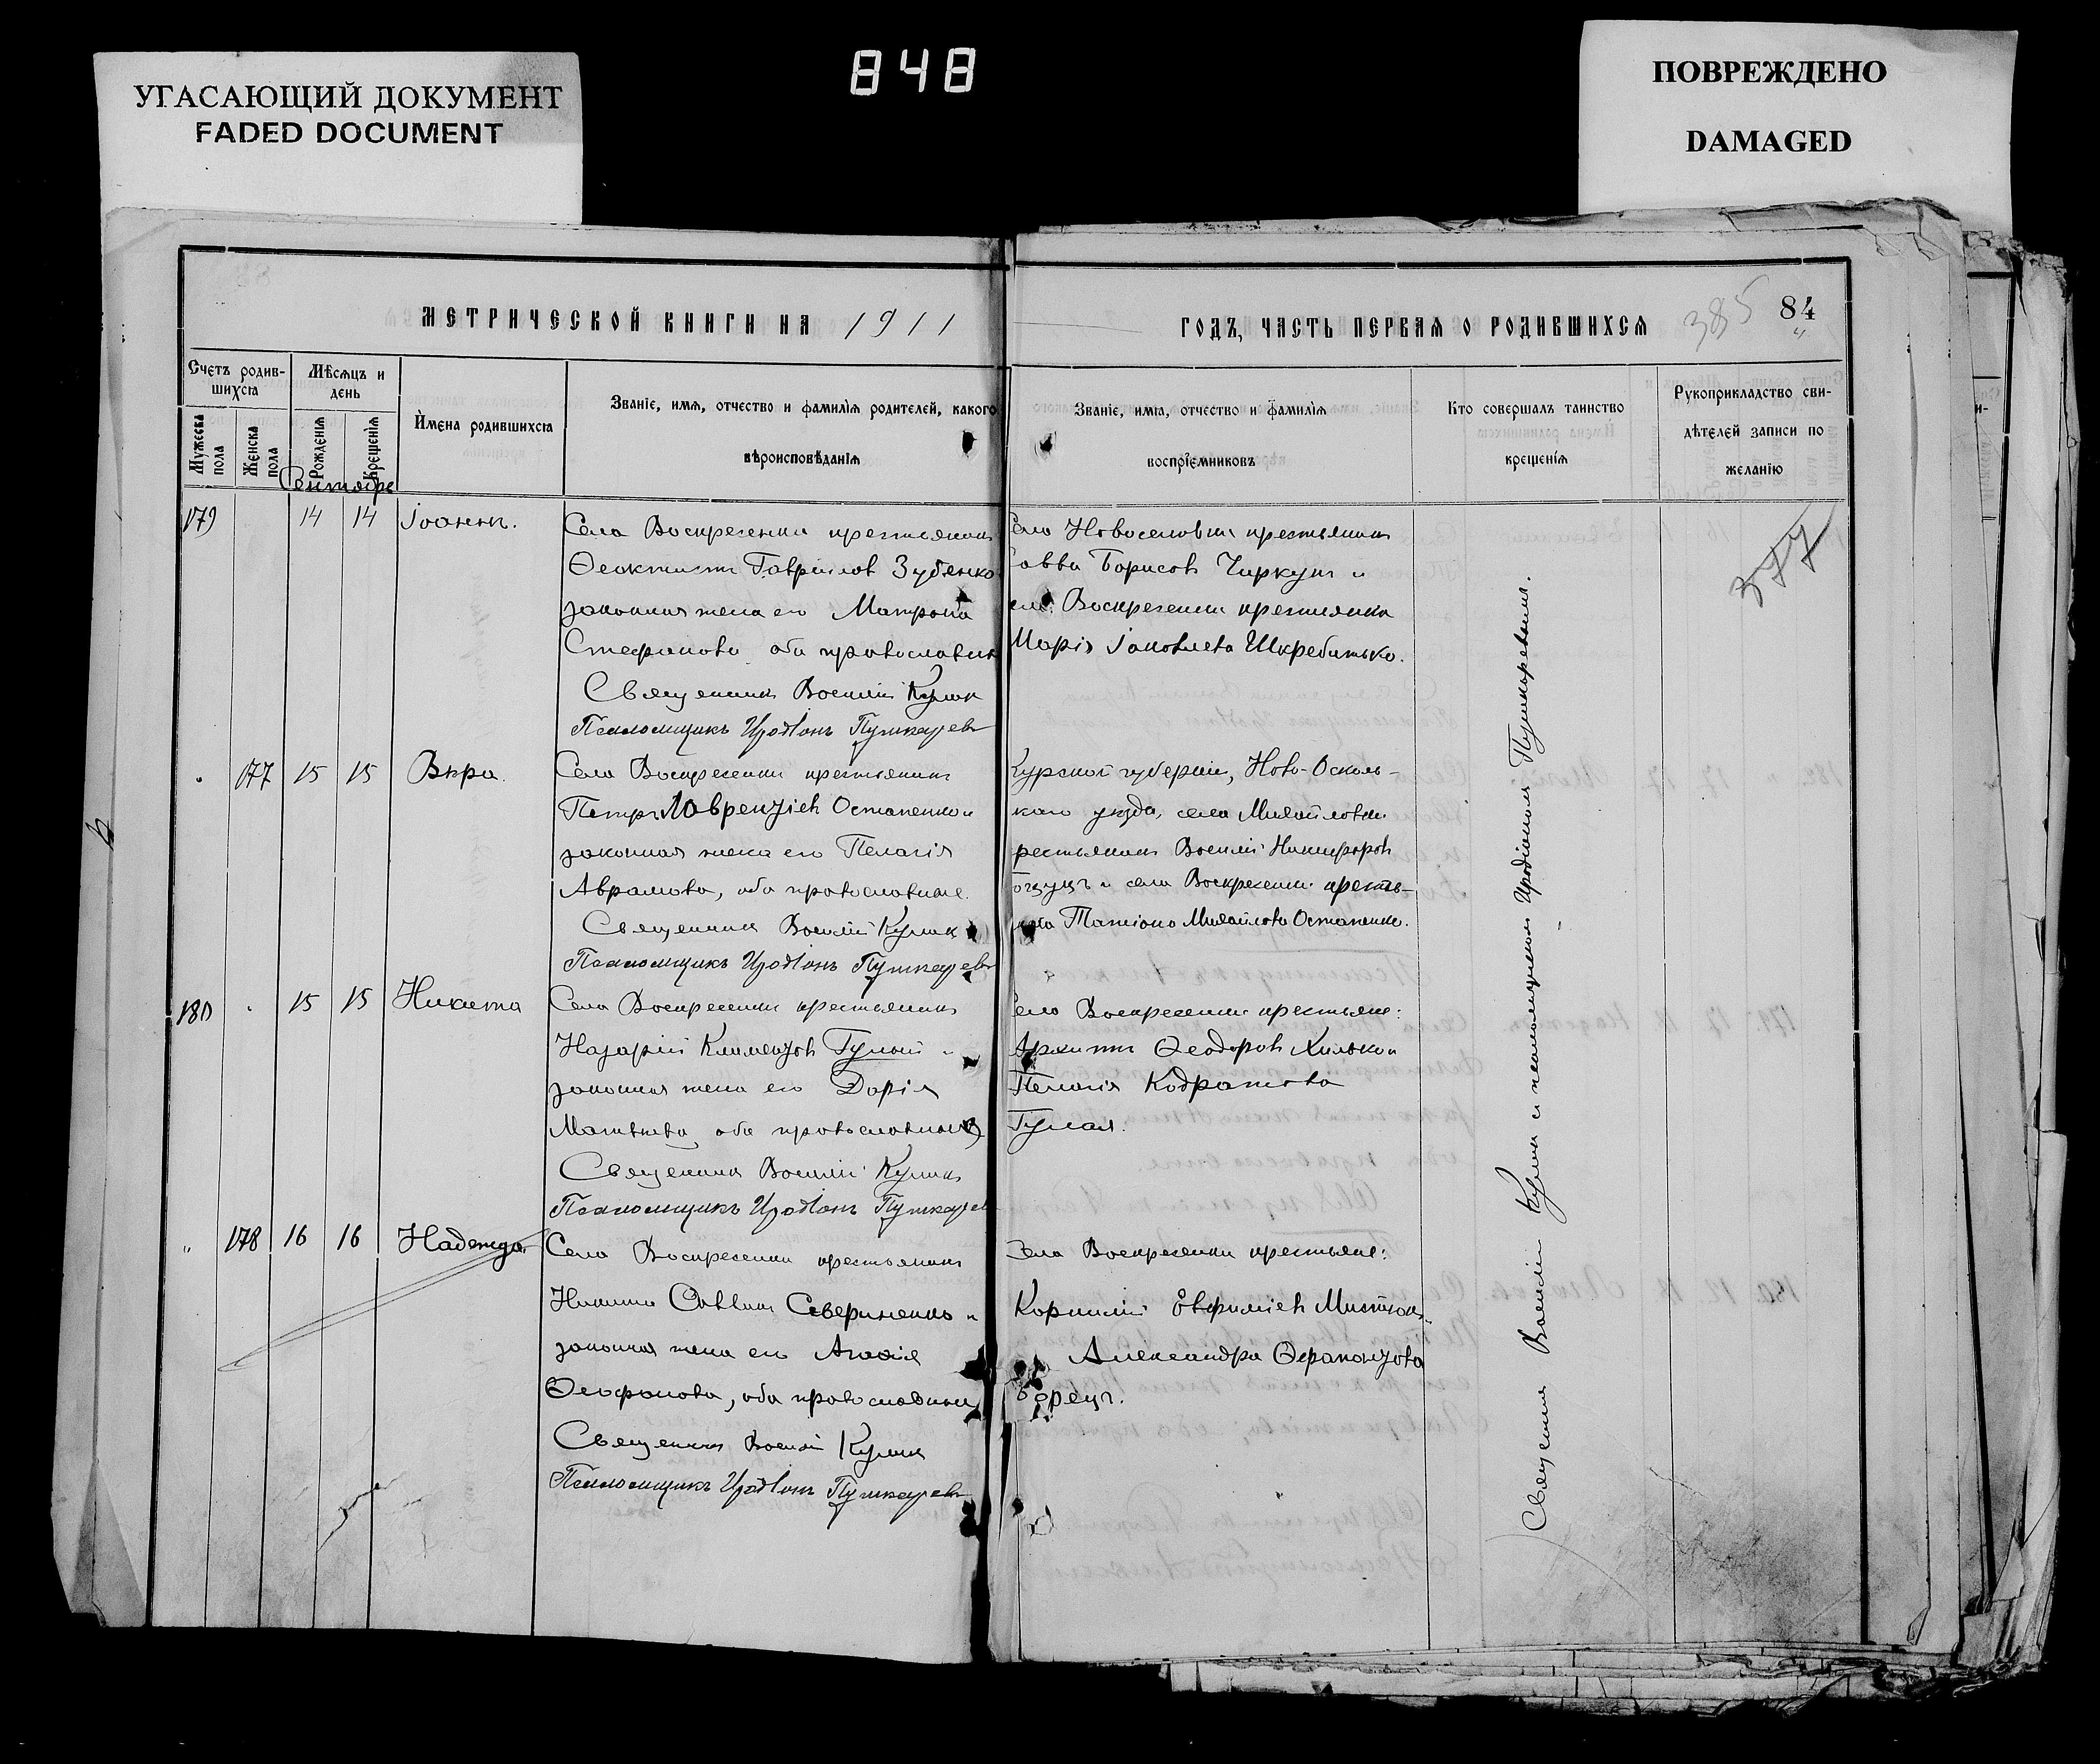 УГАСАЮЩИЙ ДОКУМЕНТ
FADED DOCUMENT
848
ПОВРЕЖДЕНО
DAMAGED
МЕТРИЧЕСКОЙ КНИГИ НА 1911
ГОДЪ, ЧАСТЬ ПЕРВАЯ О РОДИВШИХСЯ
385
84
Счетъ родив-
шихся
Мѣсяцъ и
день
Мужеска
пола
Женска
пола
Рожденія
Крещенія
Имена родившихся
Званіе, имя, отчество и фамилія родителей, какого
вѣроисповѣданія
Званіе, имя, отчество и фамилія
воспріемниковъ
Кто совершалъ таинство
крещенія
Рукоприкладство сви-
дѣтелей записи по
желанію
Сентябрь
179 14 14 Іоаннъ.
Села Воскресенки крестьянинъ
Ѳеоктистъ Гавріиловъ Зубенко
законная жена его Матрона
Стефанова оба православн
Священникъ Василій Кулик
Псаломщикъ Иродіонъ Пушкаревъ
Села Новоселовки крестьянинъ
авва Борисовъ Чиркунъ и
ела Воскресенки крестьянка
Марія Іаковлева Шкребитько.
377
177 15 15 Вѣра.
Села Воскресенки крестьянинъ
Петръ Лаврентіевъ Остапенко и
законная жена его Пелагія
Аврамова, оба православные.
Священникъ Василій Кулик
Псаломщикъ Иродіонъ Пушкаревъ
Курской губерніи, Ново-Осколь-
каго уѣзда, села Михайловки
рестьянинъ Василій Никифоровъ
и села Воскресенки кресть-
Татіана Михайлова Остапенко.
180 15 15 Никита
Села Воскресенки крестьянинъ
Назарій Климентовъ Гулый и
законная жена его Дарія
Матвѣева оба православные
Священникъ Василій Кулик
Псаломщикъ Иродіонъ Пушкарев
Села Воскресенки крестьяне:
Архиппъ Ѳеодоровъ Хилько и
Пелагія Кодратова
Гулая.
178 16 16 Надежда.
Села Воскресенки крестьянинъ
Никита Саввинъ Севериненко и
законная жена его Агаѳія
Ѳеофанова, оба православные
Священникъ Василій Кулик
Псаломщикъ Иродіонъ Пушкаревъ
Села Воскресенки крестьяне:
Корнилій Евфиміевъ
Александра Ѳерапонтова
Борецъ.
Священникъ Василій Кулик и псаломщикъ Иродіонъ Пушкаревъ.